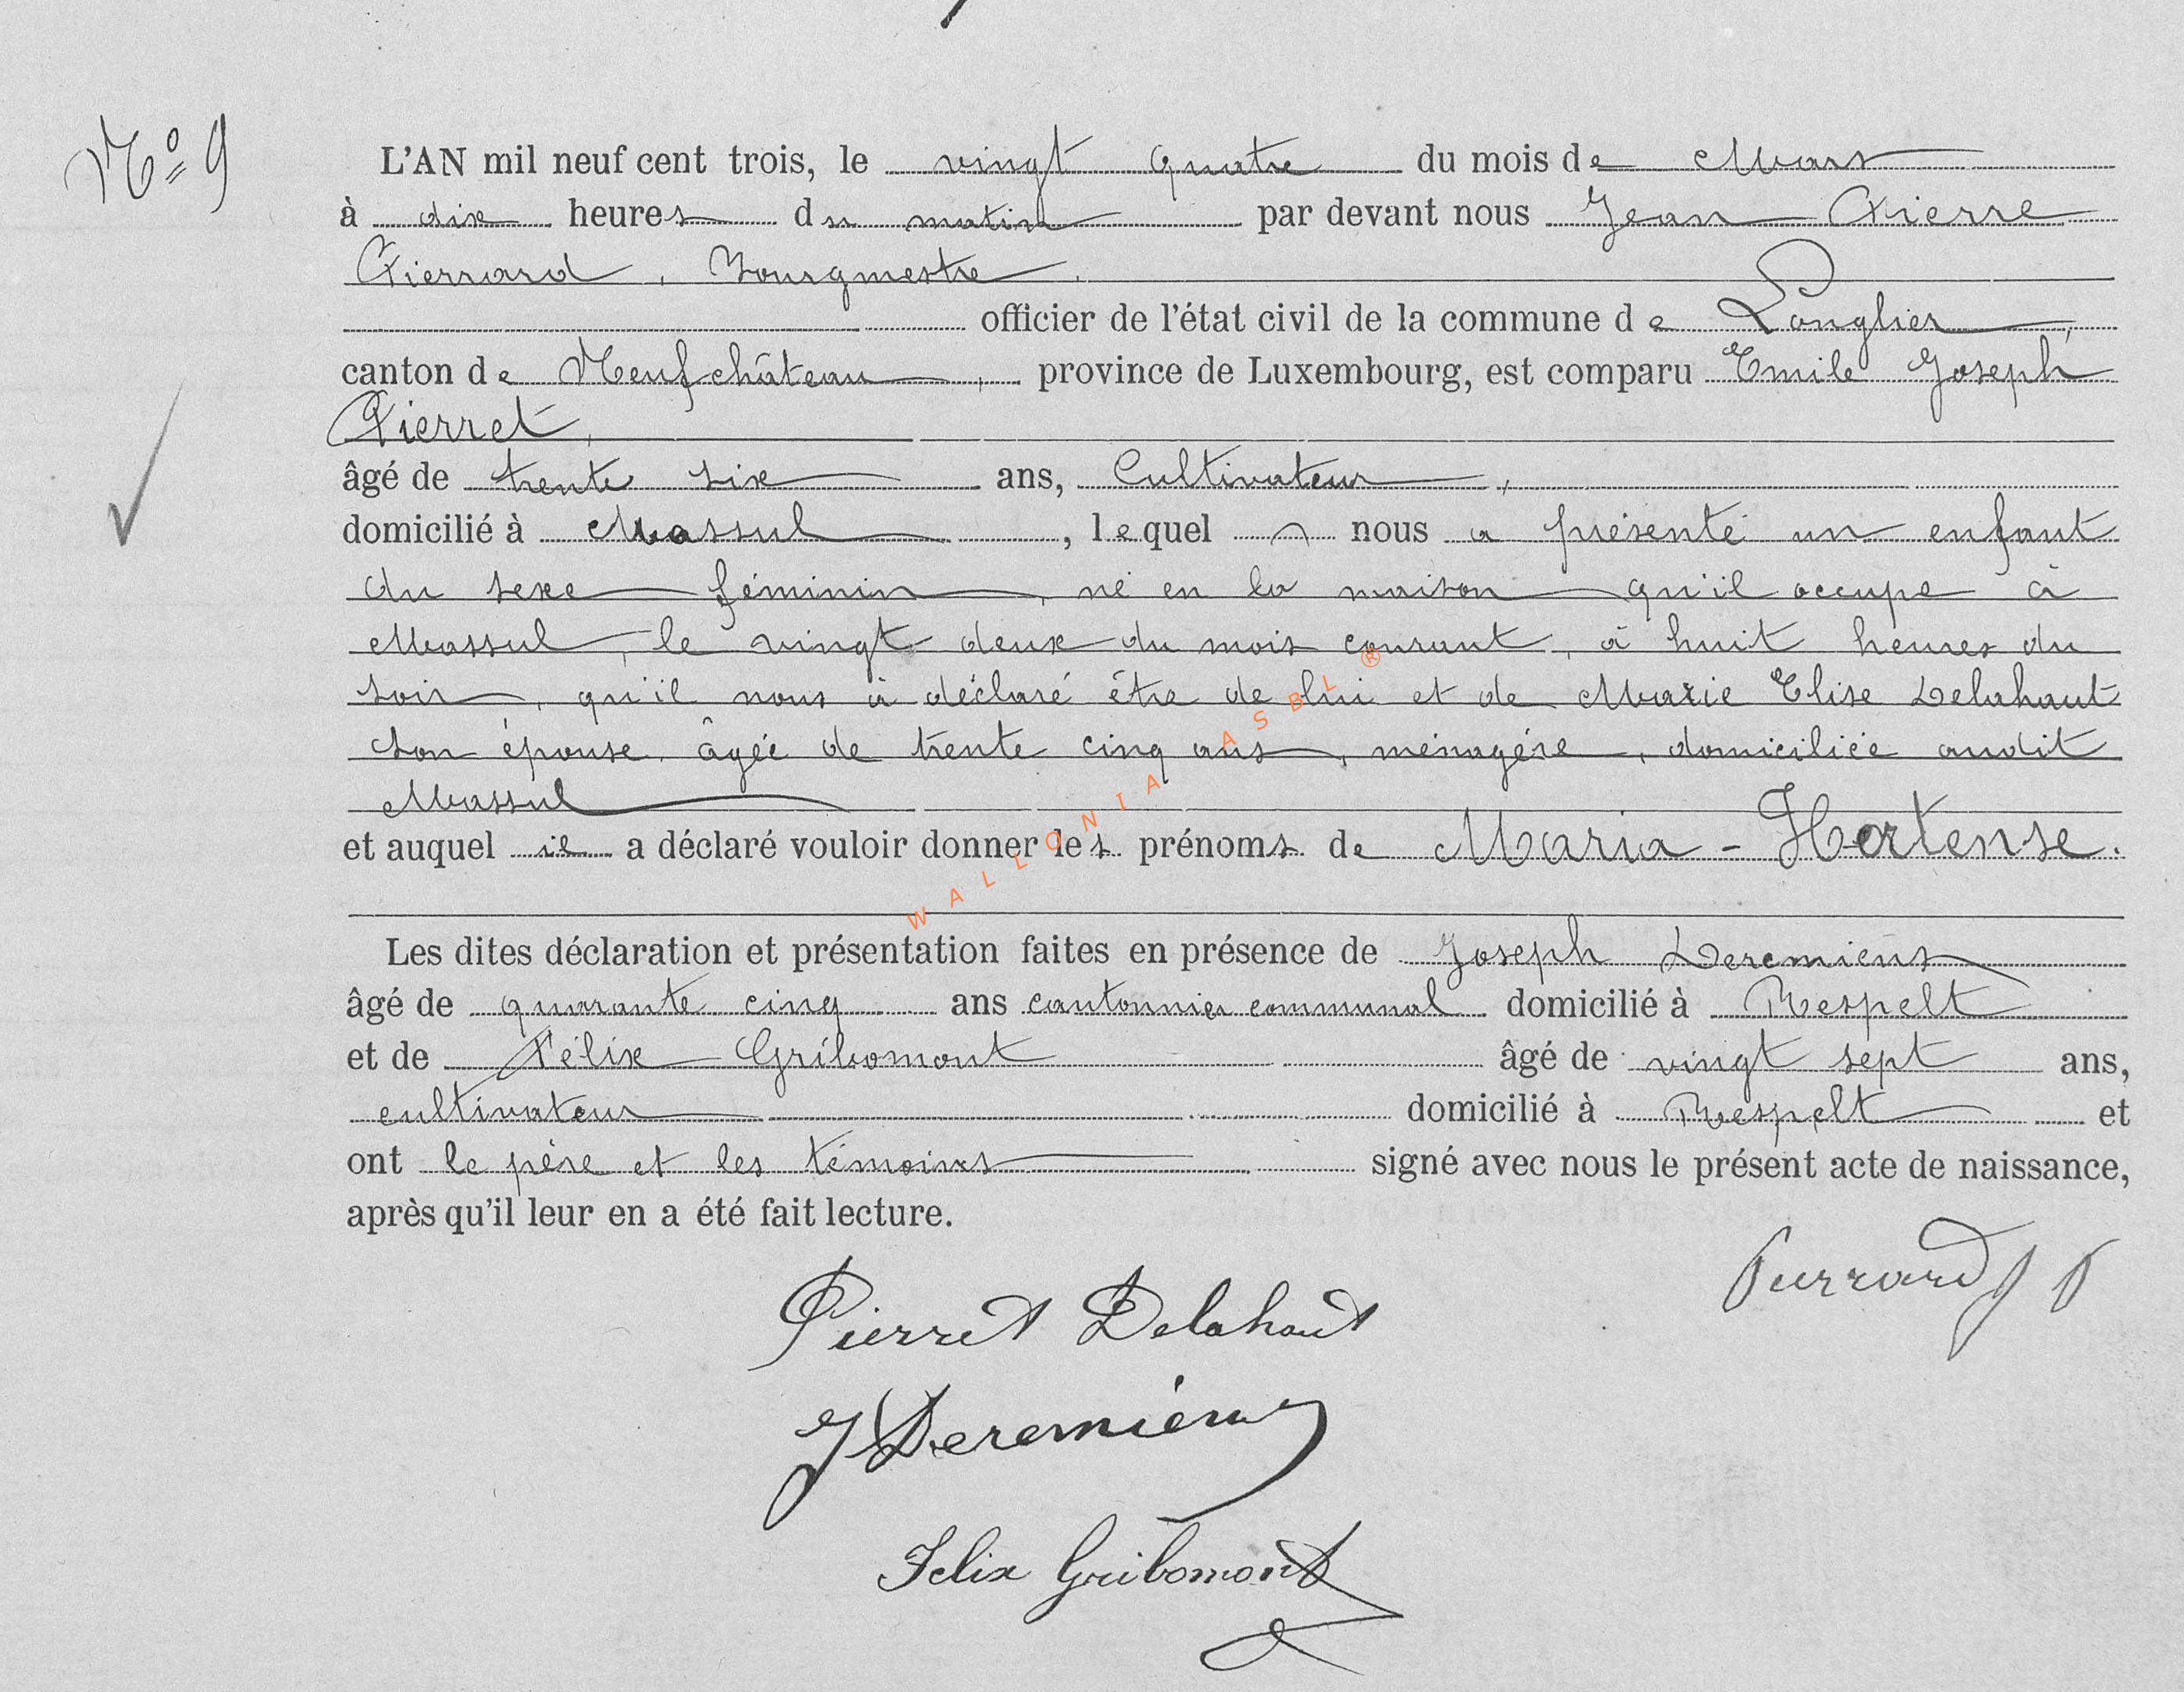 Nº 9
L'AN mil neuf cent trois, le vingt quatre du mois de Mars
à dix heures du matin par devant nous Jean Pierre
Pierrard, Bourgmestre.
officier de l'état civil de la commune de Longlier,
canton de Neufchâteau, province de Luxembourg, est comparu Emile Joseph
Pierret,
âgé de trente six ans, Cultivateur,
domicilié à Massul, lequel nous a présenté un enfant
du sexe féminin, né en la maison qu'il occupe à
Massul, le vingt deux du mois courant, à huit heures du
soir, qu'il nous à déclaré être de lui et de Marie Elise Delahaut
son épouse, âgée de trente cinq ans, ménagère, domiciliée audit
Massul
et auquel il a déclaré vouloir donner les prénoms de Maria - Hortense.
WALLONIA ASBL ®
Les dites déclaration et présentation faites en présence de Joseph Deremiens
âgé de quarante cinq ans cantonnier communal domicilié à Respelt
et de Félix Gribomont âgé de vingt sept ans,
cultivateur domicilié à Respelt et
ont le père et les témoins signé avec nous le présent acte de naissance,
après qu'il leur en a été fait lecture.
Pierrard J P
Pierret Delahaut
J Deremiens
Felix Gribomont